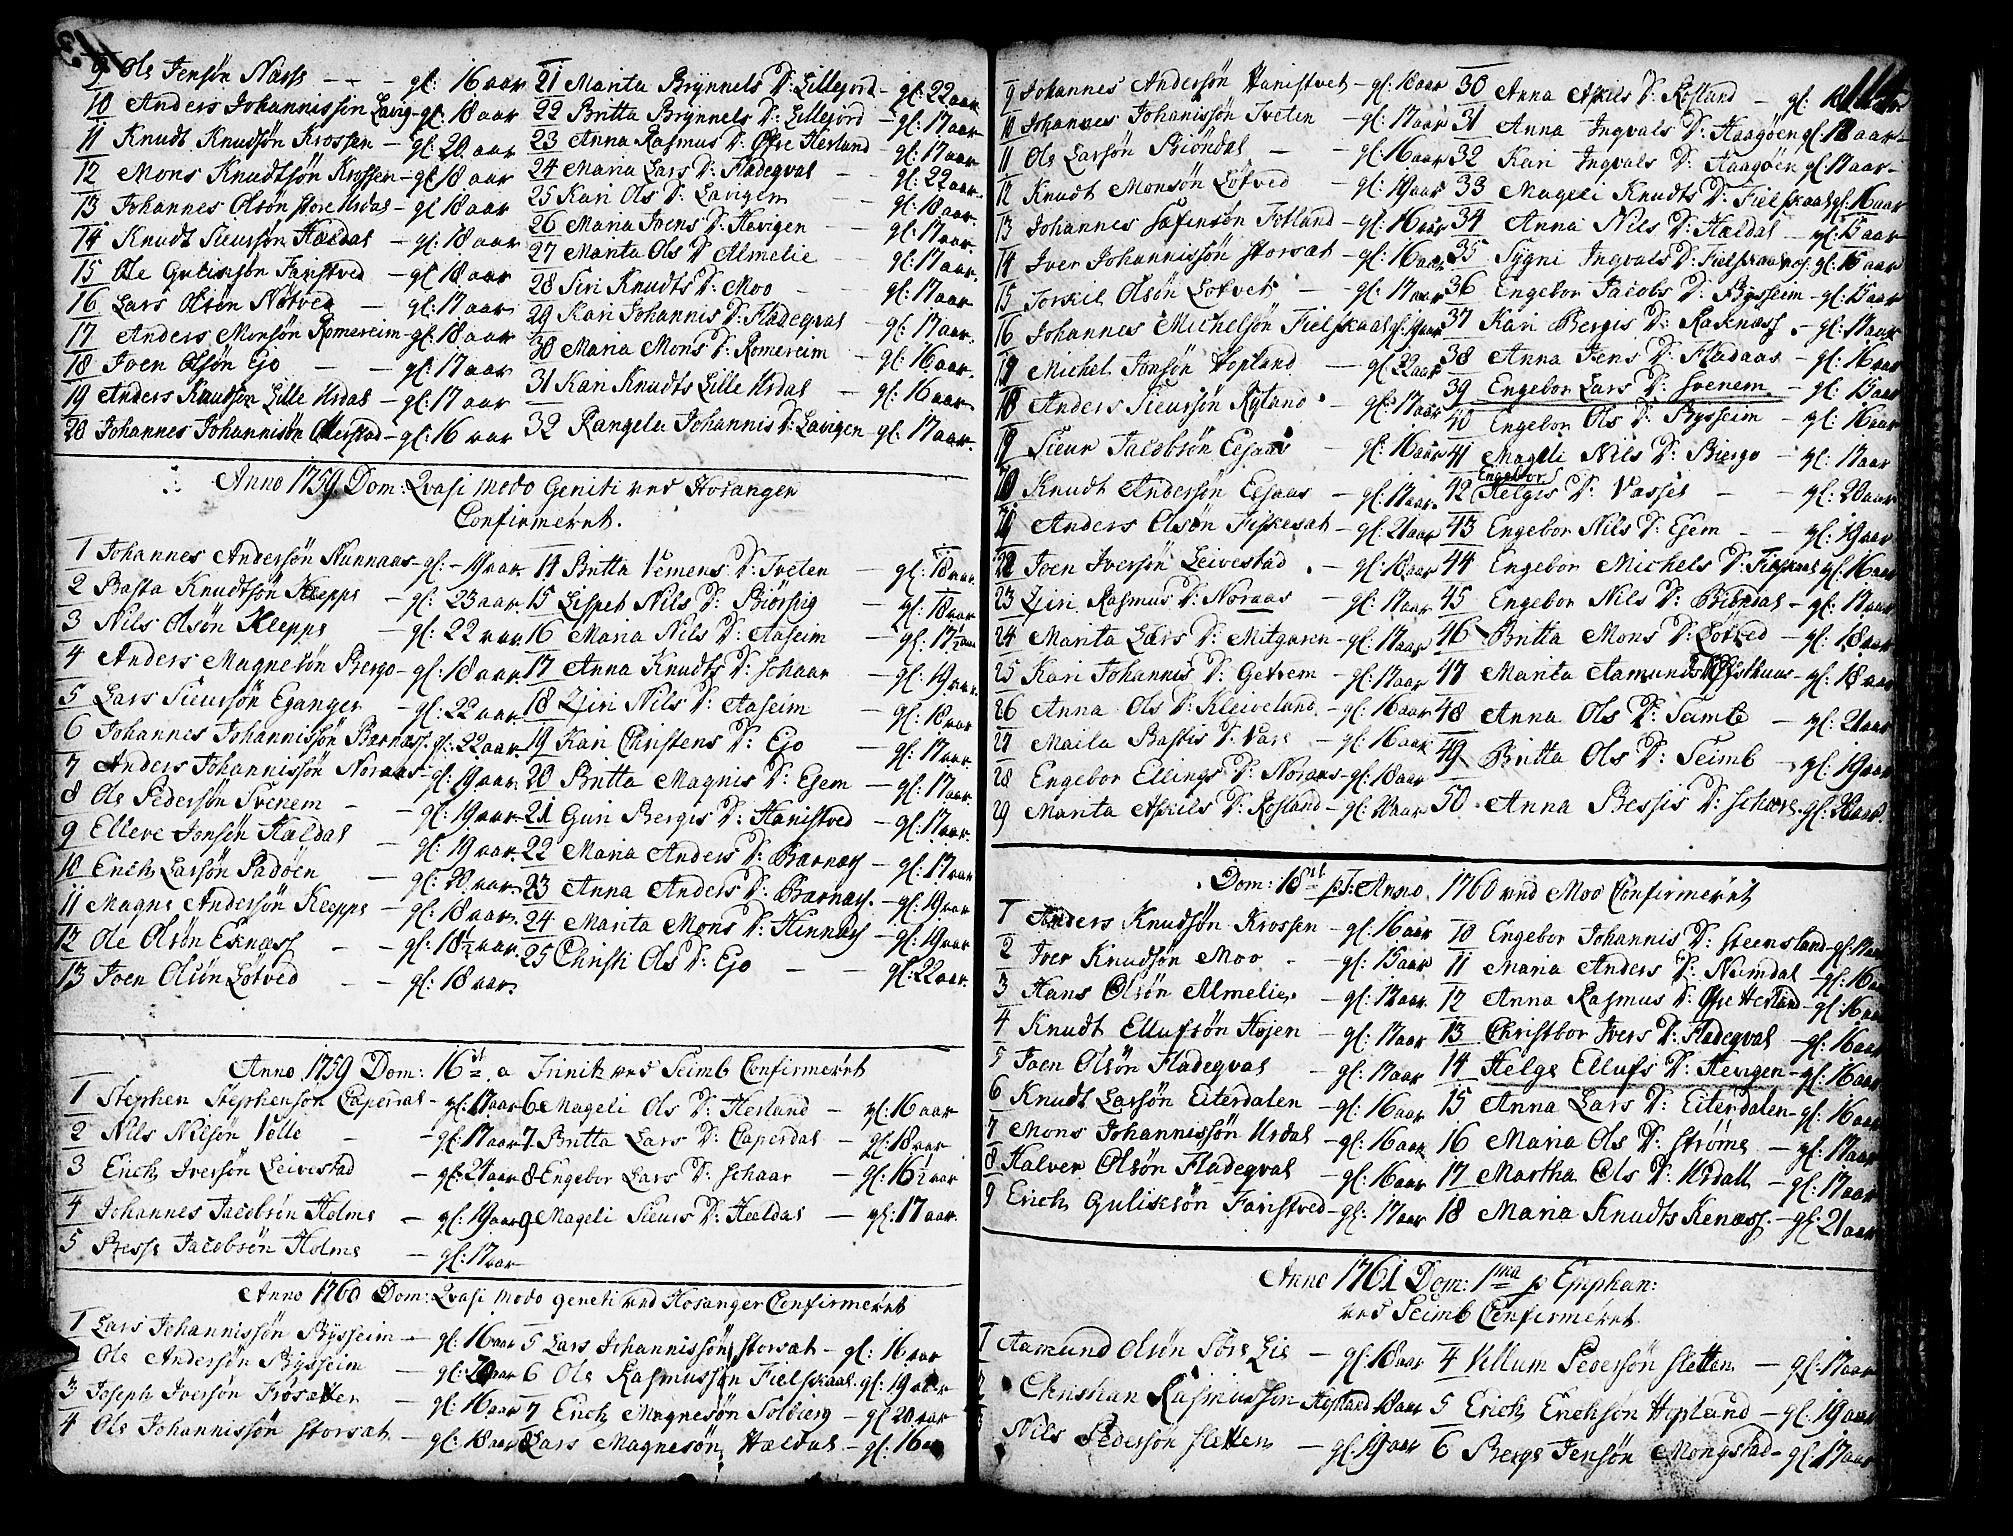 9 Ole Jensøn Næsse - - - gl: 16 aar
10 Anders Johannissøn Lavig - gl: 18 aar
11 Knudt Knudsøn Krossen - gl: 20 aar
12 Mons Knudtsøn Krossen - gl: 18 aar
13 Johannes Olsøn store Urdal - gl: 18 aar
14 Knudt Siursøn Hældal - gl: 18 aar
15 Ole Guliksøn Faristved - gl: 18 aar
16 Lars Olsøn Nøtved - gl: 17 aar
17 Anders Monsøn Romereim - gl: 18 aar
18 Joen Olsøn Ejo - - gl: 17 aar
19 Anders Knudsøn Lille Urdal - gl: 17 aar
20 Johannes Johannisøn - gl: 16 aar
21 Marita Brynnels D: Lillejord - gl: 22 aar
22 Britta Brynnels D: Lillejord - gl: 17 aar
23 Anna Rasmus D: Øfre Herland gl: 17 aar
24 Maria Lars D: Fladeqval - - gl: 22 aar
25 Kari Ols D: Lavigen - - gl: 18 aar
26 Maria Joens D: Hevigen - - gl: 17 aar
27 Marita Ols D: Almelie - - gl: 17 aar
28 Siri Knudts D: Moo - - gl: 17 aar
29 Kari Johannis D: Fladeqval - gl: 17 aar
30 Maria Mons D: Romereim - gl: 16 aar
31 Kari Knudts Lille Urdal - gl: 16 aar
32 Rangela Johannis D: Lavigen gl: 17 aar
Anno 1759 Dom: Qvasi modo Geniti ved Hosanger
Confirmeret.
1 Johannes Andersøn Nunnaas - gl: - 19 aar
2 Basta Knudtsøn Kleppe - gl: 23 aar
3 Nils Olsøn Kleppe - gl: 22 aar
4 Anders Magnesøn Bergo - gl: 18 aar
5 Lars Siursøn Eganger - gl: 22 aar
6 Johannes Johannissøn Barnæss. gl: 22 aar
7 Anders Johannissøn Noraas - gl: 19 aar
8 Ole Pedersøn Svenem - - gl: 19 aar
9 Elleve Jonsøn Hældal - gl: 19 aar
10 Erich Larsøn Padøen - gl: 20 aar
11 Magne Andersøn Kleppe - gl: 18 aar
12 Ole Olsøn Eknæss - - gl: 18½ aar
13 Joen Olsøn Løtved - - gl: 18 aar
14 Britta Vemens D: Tveten - gl: 18 aar
15 Lisbet Nils D: Biørsvig - gl: 18 aar
16 Maria Nils D: Aaseim - gl: 17½ aar
17 Anna Knudts D: Schaar - gl: 19 aar
18 Ziri Nils D: Aaseim - gl: 18 aar
19 Kari Christens D: Ejo - gl: 17 aar
20 Britta Magnis D: Ejem - gl: 17 aar
21 Guri Bergis D: Hanistved - gl: 17 aar
22 Maria Anders D: Barnæss - gl: 17 aar
23 Anna Anders D: Barnæss. - gl: 19 aar
24 Marita Mons D: Hinnæss - gl: 19 aar
25 Christi Ols D: Ejo - - gl: 22 aar
Anno 1759 Dom: 16 a Trinit: ved Seimb Confirmeret
1 Stephen Stephensøn Caperdal - gl: 17 aar
2 Nils Nilsøn Velle - gl: 17 aar
3 Erich Iversøn Leivestad - gl: 21 aar
4 Johannes Jacobsøn Holme - gl: 19 aar
5 Besse Jacobsøn Holme - gl: 17 aar
6 Mageli Ols D: Herland - gl: 16 aar
7 Britta Lars D: Caperdal - gl: 18 aar
8 Engebor Lars D: Schaar - gl: 16½ aar
9 Mageli Siurs D: Hældal - gl: 17 aar
Anno 1760 Dom: Qvasi modo geneti ved Hosanger Confirmeret
1 Lars Johannissøn Bysseim - gl: 16 aar
Ole Andersøn Bysseim - gl: 20 aar
3 Joseph Iversøn Frøsatten - gl: 16 aar
4 Ole Johannissøn Storsat - gl: 18 aar
5 Lars Johannissøn Storsat - gl: 16 aar
6 Ole Rasmussøn Fielskaal gl: 19 aar
7 Erich Magnesøn Solbierg - gl 20 aar
8 Lars Magnesøn Hældal - gl: 16 aar
9 Johannes Andersøn Hanistvet - gl: 18 aar
10 Johannes Johanissøn Tveten - gl: 17 aar
11 Ole Larsøn Biøndal - - gl: 16 aar
12 Knudt Monsøn Løtved - gl: 19 aar
13 Johannes Fotland - gl: 16 aar
14 Iver Johannissøn Storsat - gl: 16 aar
15 Torkil Olsøn Løtvet - gl: 17 aar
16 Johannes Michelsøn Fielskaal gl: 19 aar
17 Michel Jonsøn Hopland - gl 22 aar
18 Anders Siursøn Ryland - gl: 17 aar
19 Siur Jacobsøn Eljaas - gl: 16 aar
20 Knudt Andersøn Eljaas - gl: 17 aar
21 Anders Olsøn Fiskesat - gl: 21 aar
22 Joen Iversøn Leivestad - gl: 18 aar
23 Ziri Rasmus D: Noraas - gl: 17 aar
24 Marita Lars D: Mitgaren - gl: 17 aar
25 Kari Johannis D: Getrem - gl: 17 aar
26 Anna Ols D: Kleiveland - gl: 16 aar
27 Maila Bastis D: Vare - gl: 16 aar
28 Engebor Ellings D: Noraas - gl: 18 aar
29 Marita Askils D: Rosland - gl: 20 aar
30 Anna Askils D: Rosland - gl: 18 aar
31 Anna Ingvals D: Haagøen gl: 18 aar
32 Kari Ingvals D: Haagøen gl: 17 aar
33 Mageli Knudts D: Fielskaal gl: 16 aar
34 Anna Nils D: Hældal - gl: 15 aar
35 Sygni Ingvals D: Fielskaal gl: 16 aar
36 Engebor Jacobs D: Bysseim - gl: 15 aar
37 Kari Bergis D: Raknæss. - gl: 17 aar
38 Anna Jens D: Fladaas - gl: 16 aar
39 Engebor Lars D: Svenem. - gl: 15 aar
40 Engebor Ols D: Bysseim - gl: 16 aar
41 Mageli Nils D: Biergo - gl: 17 aar
42 Engebor Helges D: Vassel - gl: 20 aar
43 Engebor Nils D: Ejem - gl: 19 aar
44 Engebor Michels D: Fielskaal gl: 16 aar
45 Engebor Nils D: Biøndal - gl: 17 aar
46 Britta Mons D: Løtved - gl: 18 aar
47 Marita Aamunds D: - gl: 18 aar
48 Anna Ols D: Seimb - gl: 21 aar
49 Britta Ols D: Seimb - gl: 19 aar
50 Anna Bessis D: Schare - gl: 20 aar
Dom: 18 p T: Anno 1760 ved Moo Confirmeret
1 Anders Knudsøn Krossen - gl: 16 aar
2 Iver Knudsøn Moo - gl: 15 aar
3 Hans Olsøn Almelie - gl: 17 aar
4 Knudt Ellufsøn Højen - gl: 17 aar
5 Joen Olsøn Fladeqval - gl: 17 aar
6 Knudt Larsøn Eiterdalen - gl: 16 aar
7 Mons Johannissøn Urdal - gl: 16 aar
8 Halver Olsøn Fladeqval - gl: 16 aar
9 Erich Guliksøn Faristved - gl: 17 aar
10 Engebor Johannis D: Steensland - gl: 17 aar
11 Maria Anders D: Numdal - gl: 16 aar
12 Anna Rasmus D: Øfre Herland - gl: 16 aar
13 Christbor Ivers D: Fladeqval - gl: 16 aar
14 Helge Ellufs D: Hevigen - gl: 16 aar
15 Anna Lars D: Eiterdalen - gl: 16 aar
16 Maria Ols D: Strøms - gl: 17 aar
17 Martha Ols D: Urdall - gl: 17 aar
18 Maria Knudts Kenæss - gl: 21 aar
Anno 1761 Dom: 1ma p Epiphan:
ved Seimb Confirmeret
1 Aamund Olsøn Søre Lie - gl: 18 aar
Christian Rasmussøn Hopland 18 aar
Nils Pedersøn Sletten - gl: 19 aar
4 Villum Pedersøn Sletten - gl: 17 aar
5 Erich Ericksøn Hopland - gl: 19 aar
6 Berge Jensøn Mongstad - gl: 17 aar